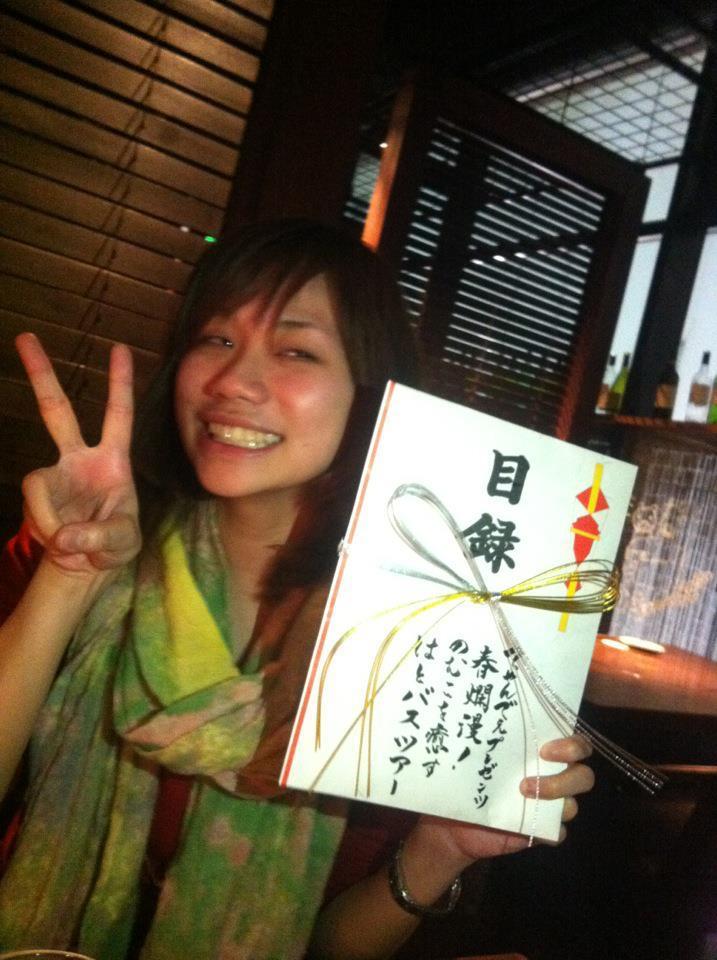 目録
じゃんでえプレゼンツ
春爛漫!
のんこを癒す
はとバスツアー